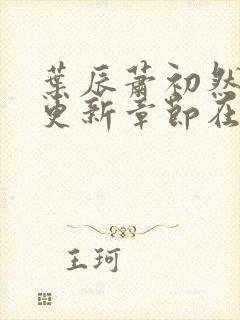 葉辰蕭初然
更新章節在
王珂